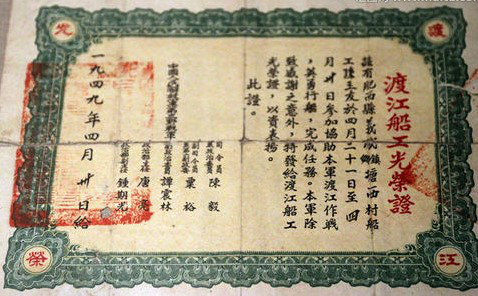 光
渡
渡江船工光榮證
茲有肥西縣義城鄉鎮塘西村船
工陳立友於四月二十一日至四
月廿日參加協助本軍渡江作戰
,英勇行船,完成任務。本軍除
致感謝之意外,特發給渡江船工
光榮證,以資表揚。
此證。
中國人民解放軍第三野戰軍
司令員
兼政治委員 陳毅
副司令員 粟裕
副政治委員 譚震林
政治部主任 唐亮
政治部副主任 鍾期光
一九四九年四月廿日給
榮
江